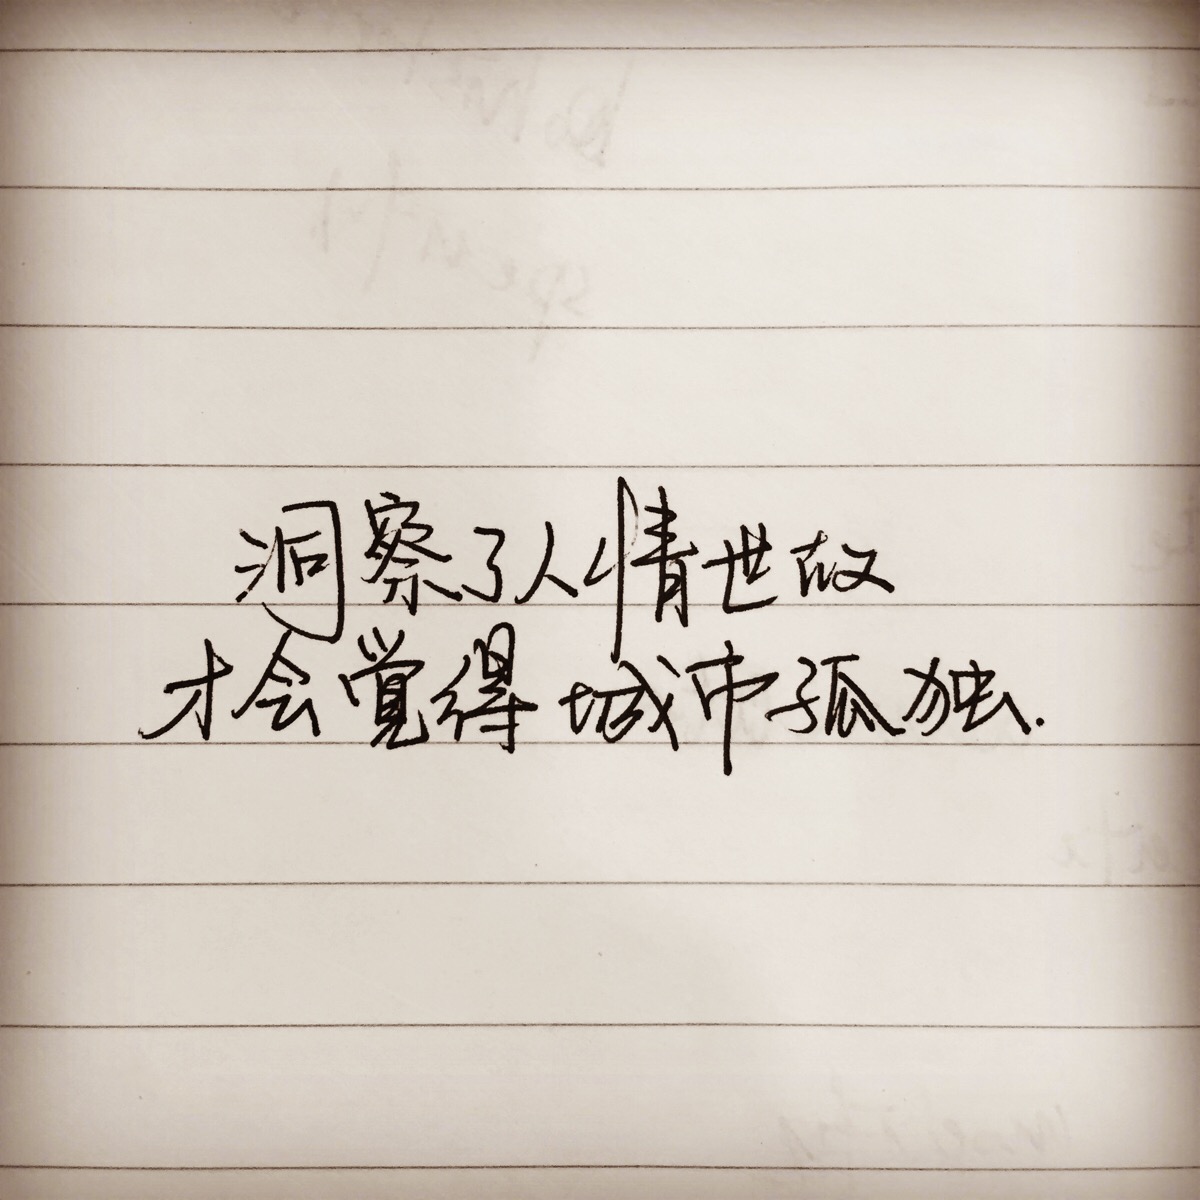 洞察了人情世故
才会觉得城市孤独.